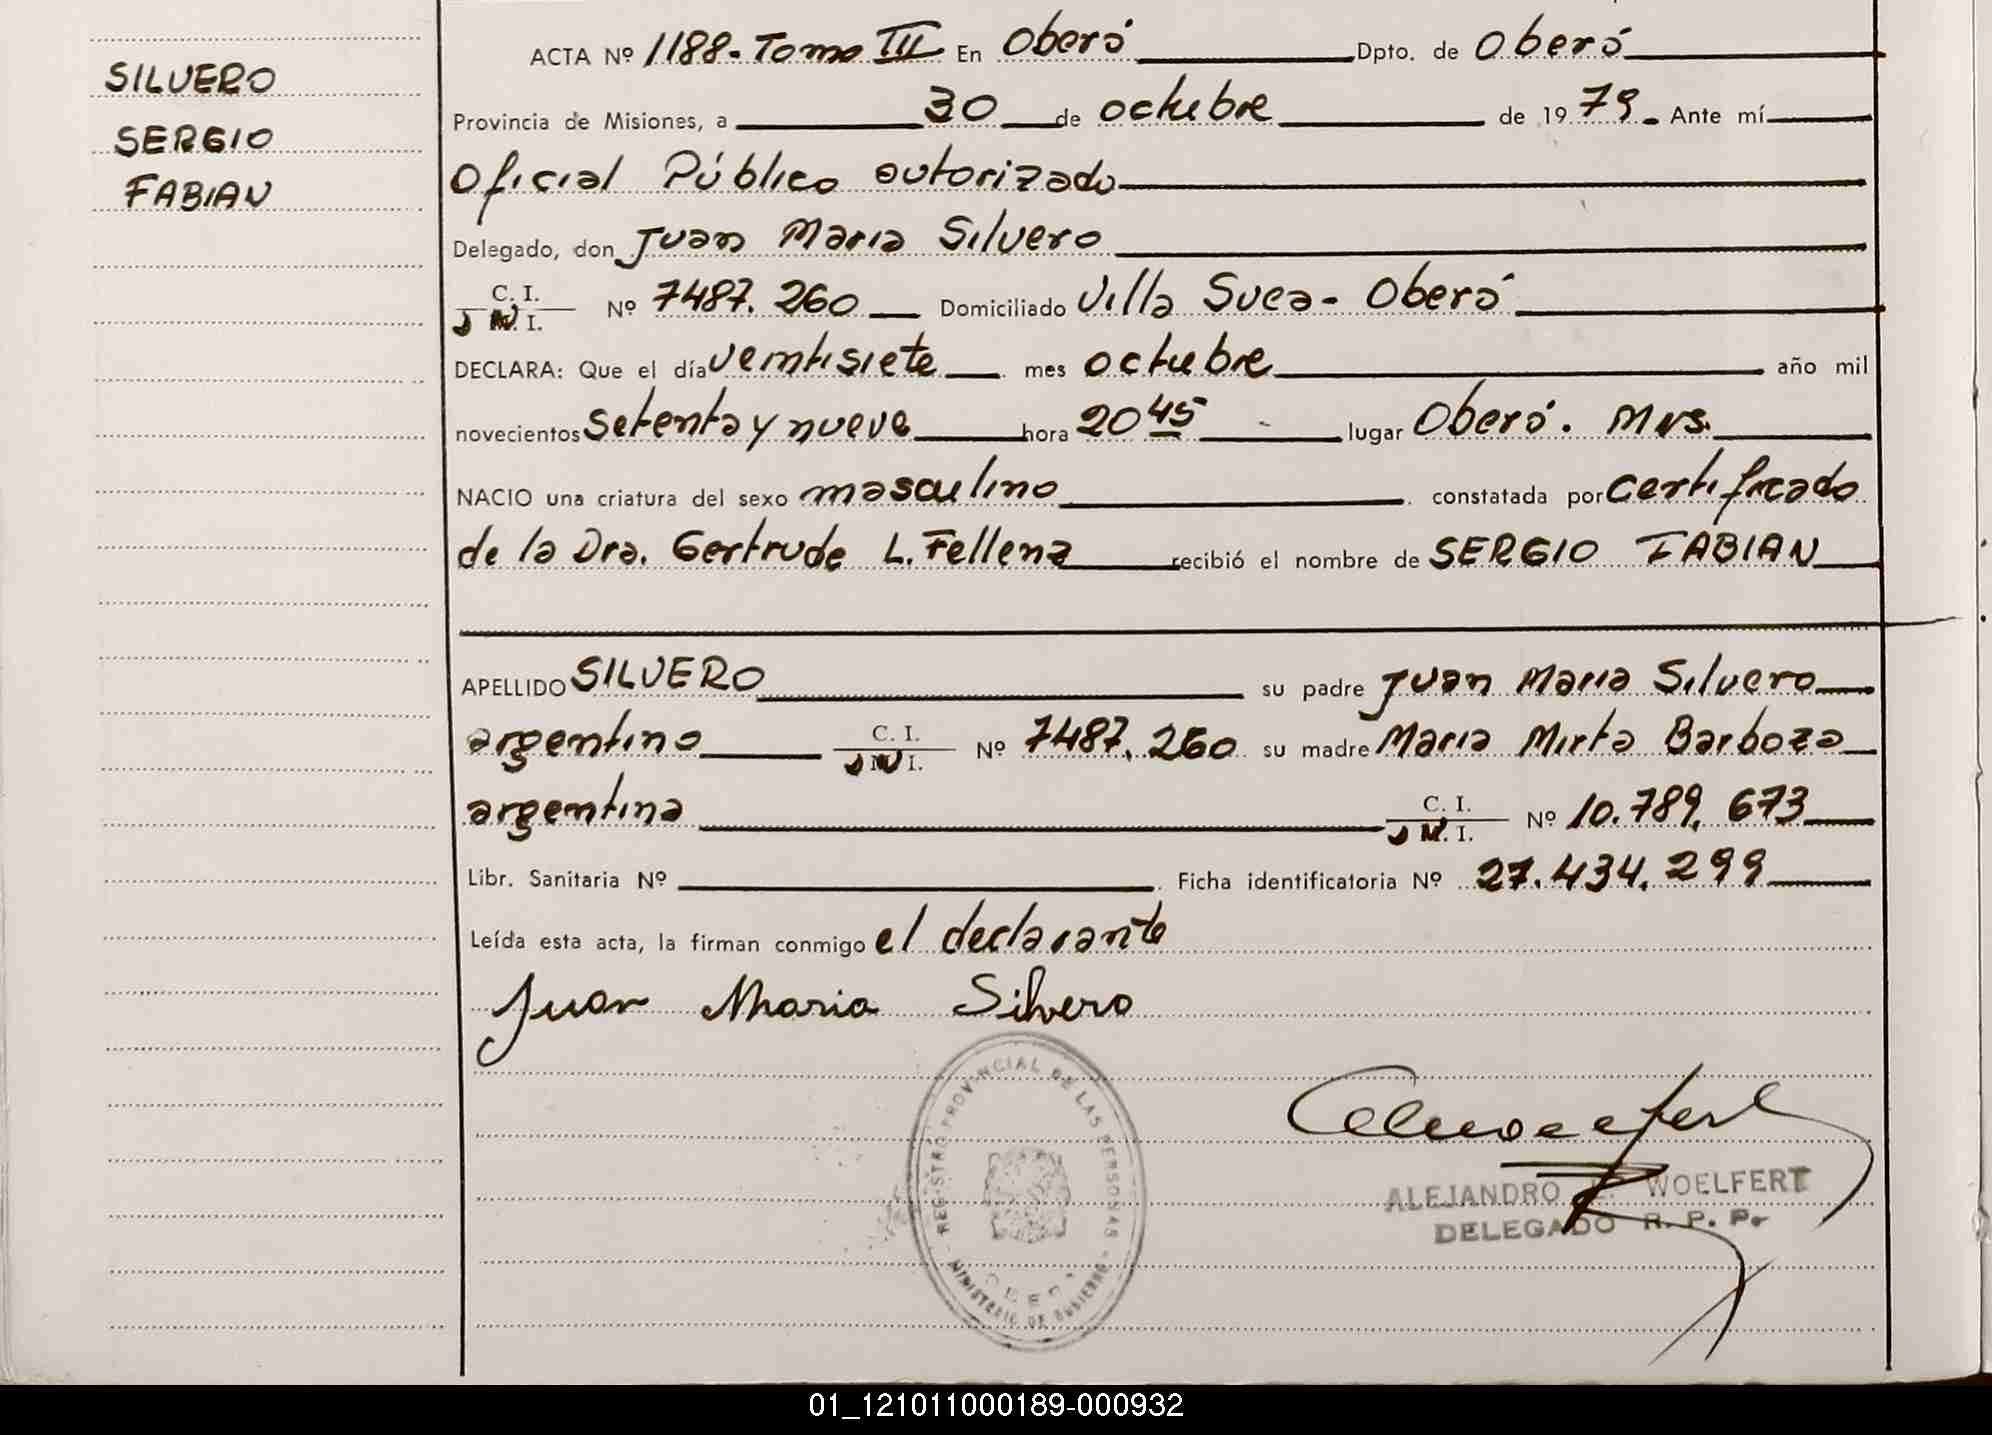 SILVERO
SERGIO
FABIAN
ACTA Nº 1188-Tomo III En Oberá Dpto. de Oberá
Provincia de Misiones, a 30 de octubre de 1979. Ante mí
Oficial Público autorizado
Delegado, don Juan Maria Silvero
C. I.
D N. I. Nº 7487.260 Domiciliado Villa Suca- Oberá
DECLARA: Que el día veintisiete mes octubre año mil
novecientos setenta y nueve hora 20 45 lugar Oberá. Mns.
NACIO una criatura del sexo masculino constatada por certificado
de la Dra. Gertrude L. Fellenz recibió el nombre de SERGIO FABIAN
APELLIDO SILVERO su padre Juan Maria Silvero
argentino C. I. Nº 7487.260 su madre Maria Mirta Barboza
D N I.
argentina C. I. Nº 10.789.673
D N. I.
Libr. Sanitaria Nº Ficha identificatoria Nº 27.434.299
Leída esta acta, la firman conmigo el declarante
Juan Maria Silvero
REGISTRO PROVINCIAL DE LAS PERSONAS
MINISTERIO DE GOBIERNO
ALEJANDRO E. WOELFERT
DELEGADO R. P. Pr
01_121011000189-000932